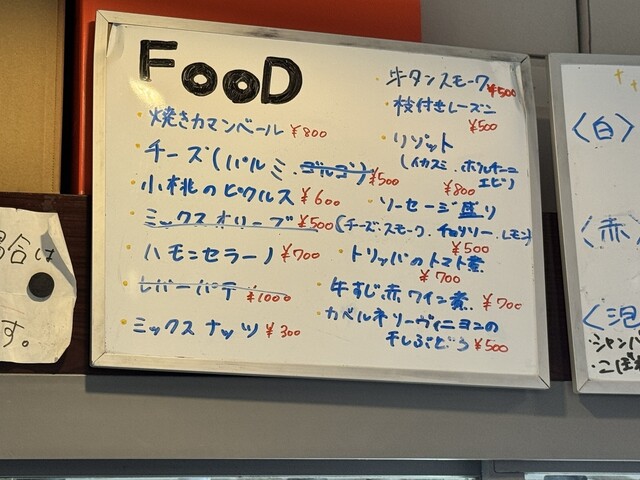 FOOD
・焼きカマンベール ¥800
・チーズ(パルミ.ゴルゴ) ¥500
・小桃のピクルス ¥600
・ミックスオリーブ ¥500
・ハモンセラーノ ¥700
・レバーパテ ¥1000
・ミックスナッツ ¥300
・牛タンスモーク ¥500
・枝付きレーズン
¥500
・リゾット
(イカスミ.ポルチーニ
エビ)
¥800
・ソーセージ盛り
(チーズ.スモーク.チョリソー.レモン)
¥500
・トリッパのトマト煮
¥700
・牛すじ赤ワイン煮 ¥700
・カベルネソーヴィニヨンの
干しぶどう ¥500
場合は
す。
〈白〉
〈赤〉
〈泡
・シャンパ
・こぼれ